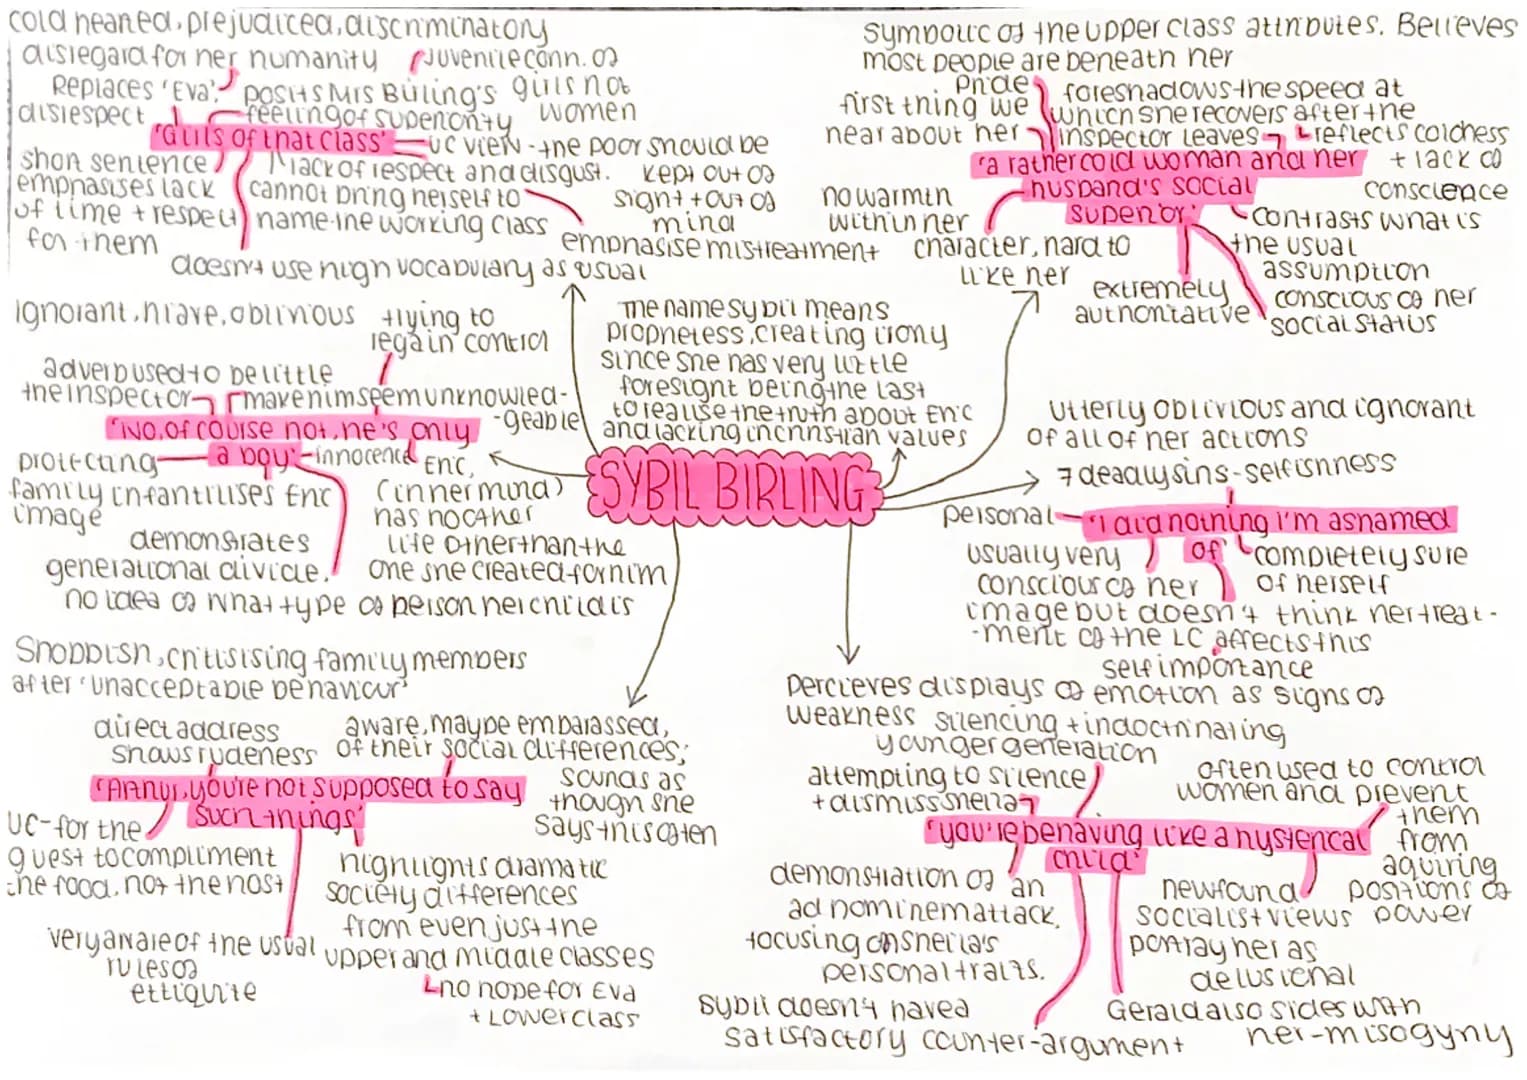 cold hearted, prejudiced, discriminatory
disregard for her humanity
juvenile conn. of
girls not
women
Replaces 'Eva'.
disrespect
posits Mrs Birling's
feeling of superiority
'Girls of that class'
UC view - the poor should be
kept out of
sight + out of
mind
short sentence
emphasises lack
of time + respect
for them
lack of respect and disgust.
cannot bring herself to
name the working class
emphasise mistreatment
doesn't use high vocabulary as usual
symbolic of the upper class attributes. Believes
most people are beneath her
Pride
first thing we
hear about her
foreshadows the speed at
which she recovers after the
inspector leaves
reflects coldness
+ lack of
conscience
'a rather cold woman and her
husband's social
superior'
no warmth
within her
character, hard to
like her
contrasts what is
the usual
assumption
extremely
authoritative
conscious of her
social status
Ignorant, niave, oblivious
trying to
regain control
adverb used to belittle
the inspector
make him seem unknowled-
-geable
'No, of course not, he's only
a boy'
innocence
protecting
family
image
infantilises Eric
demonstrates
generational divide.
Eric,
(in her mind)
has no other
life other than the
one she created for him
no idea of what type of person her child is
the name sybil means
prophetess, creating irony
since she has very little
foresight being the last
to realise the truth about Eric
and lacking in christian values
SYBIL BIRLING
utterly oblivious and ignorant
of all of her actions
7 deadly sins - selfishness
personal
'I did nothing I'm ashamed
of'
usually very
conscious of her
image but doesn't think her treat-
-ment of the LC affects this
completely sure
of herself
self importance
Snobbish, critisising family members
after 'unacceptable behaviour'
direct address
shows rudeness
aware, maybe embarassed,
of their social differences;
sounds as
though she
says this often
'(Arthur, you're not supposed to say
such things'
UC - for the
guest to compliment
the food, not the host
highlights dramatic
society differences
from even just the
upper and middle classes
no hope for Eva
+ lower class
very aware of the usual
rules of
ettiquite
Percieves displays of emotion as signs of
weakness
silencing + indoctrinating
younger generation
attempting to silence
+ dismiss sheila
often used to control
women and prevent
them
from
aquiring
positions of
power
'you're behaving like a hysterical
child'
demonstration of an
ad hominem attack,
focusing on sheila's
personal traits.
newfound
socialist views
portray her as
delusional
sybil doesn't have a
satisfactory counter-argument
Gerald also sides with
her - misogyny